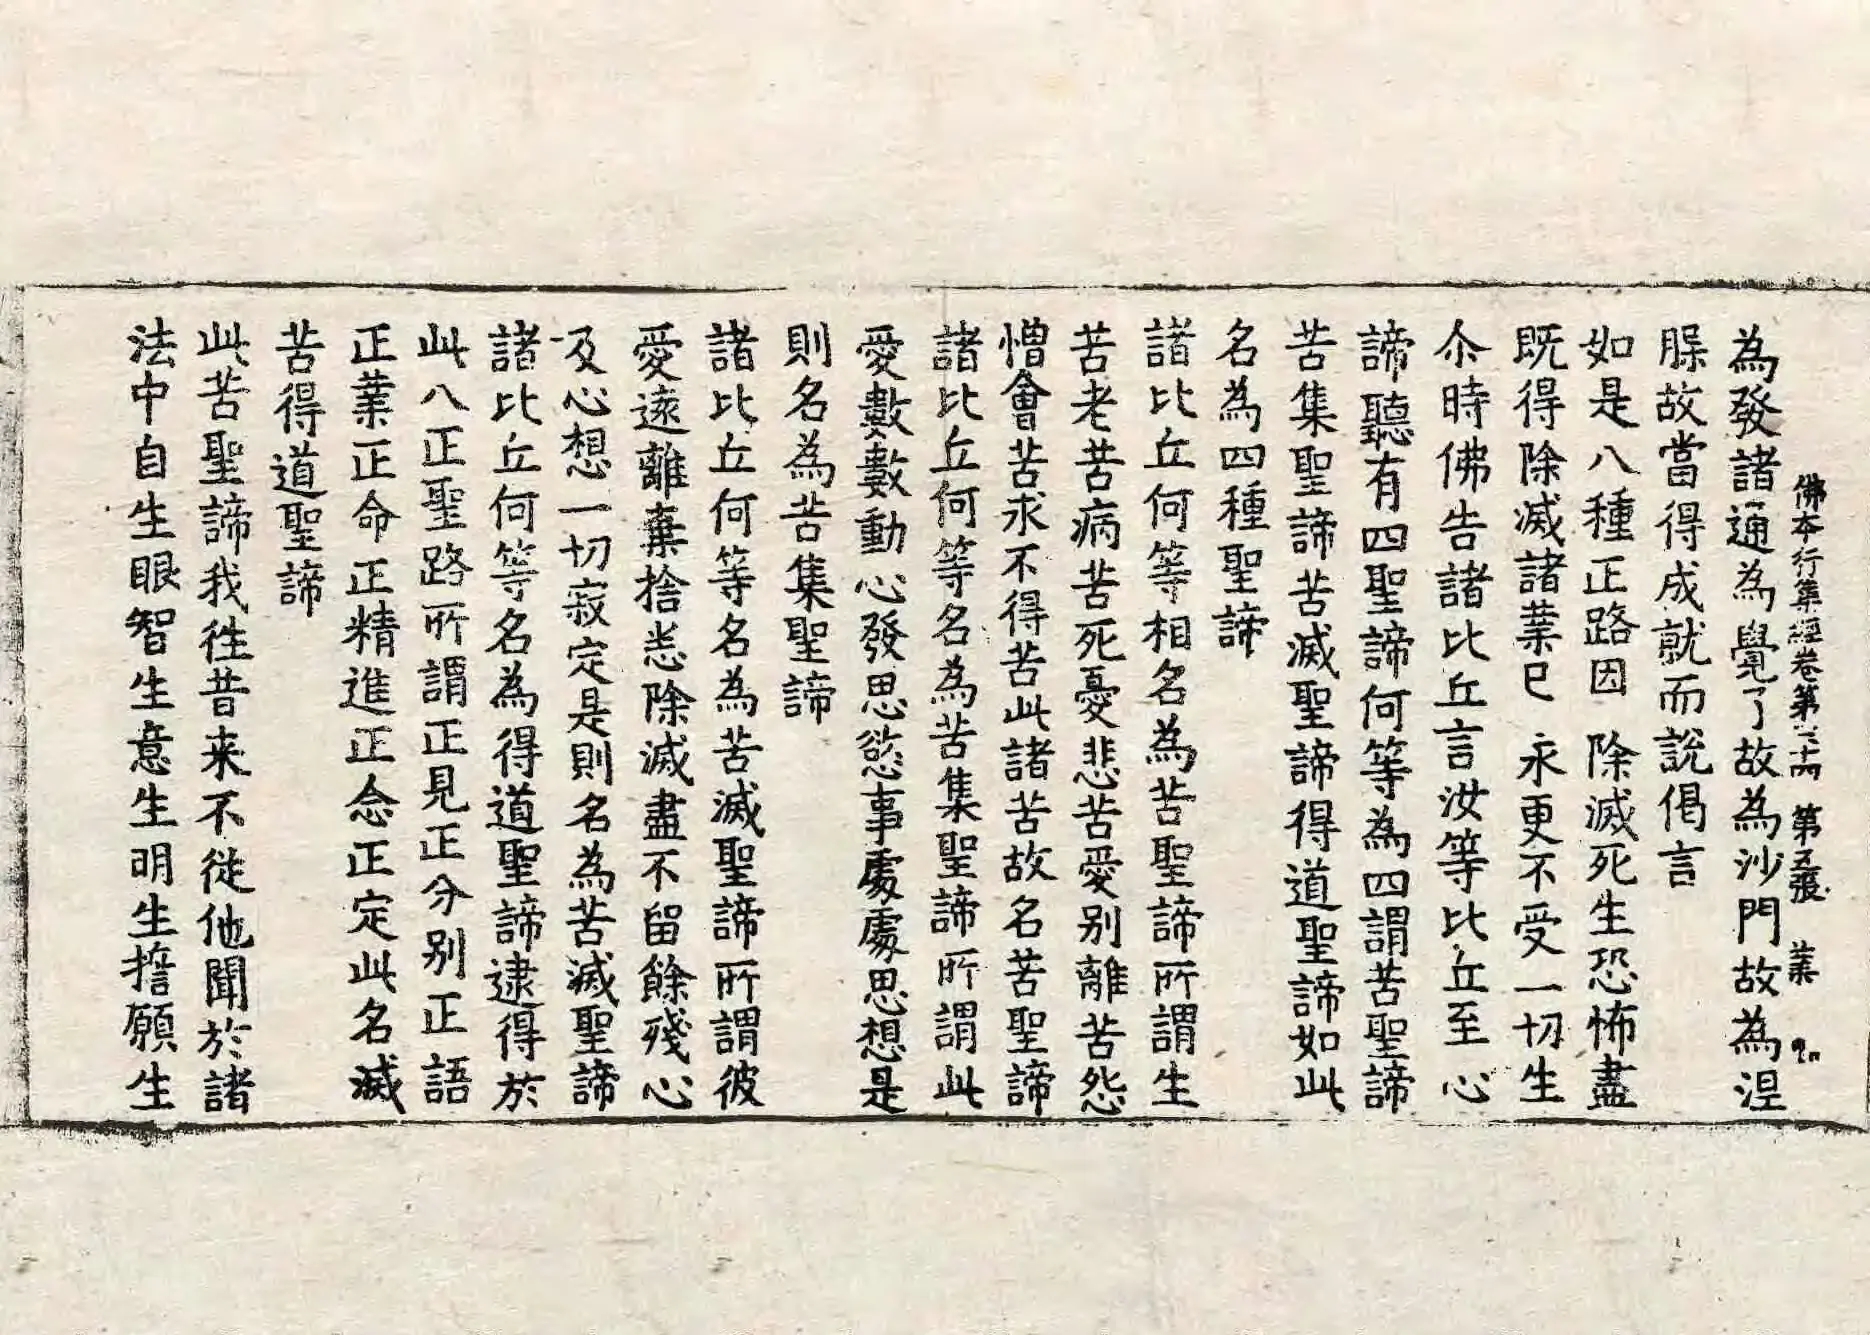 佛本行集經卷第三十四 第五張 業
為發諸通為覺了故為沙門故為涅
腺故當得成就而說偈言
如是八種正路因 除滅死生恐怖盡
既得除滅諸業已 永更不受一切生
尒時佛告諸比丘言汝等比丘至心
諦聽有四聖諦何等為四謂苦聖諦
苦集聖諦苦滅聖諦得道聖諦如此
名為四種聖諦
諸比丘何等相名為苦聖諦所謂生
苦老苦病苦死憂悲苦愛別離苦怨
憎會苦求不得苦此諸苦故名苦聖諦
諸比丘何等名為苦集聖諦所謂此
愛數數動心發思慾事處處思想是
則名為苦集聖諦
諸比丘何等名為苦滅聖諦所謂彼
愛遠離棄捨悉除滅盡不留餘殘心
及心想一切寂定是則名為苦滅聖諦
諸比丘何等名為得道聖諦逮得於
此八正聖路所謂正見正分別正語
正業正命正精進正念正定此名滅
苦得道聖諦
此苦聖諦我往昔来不從他聞於諸
法中自生眼智生意生明生擔願生